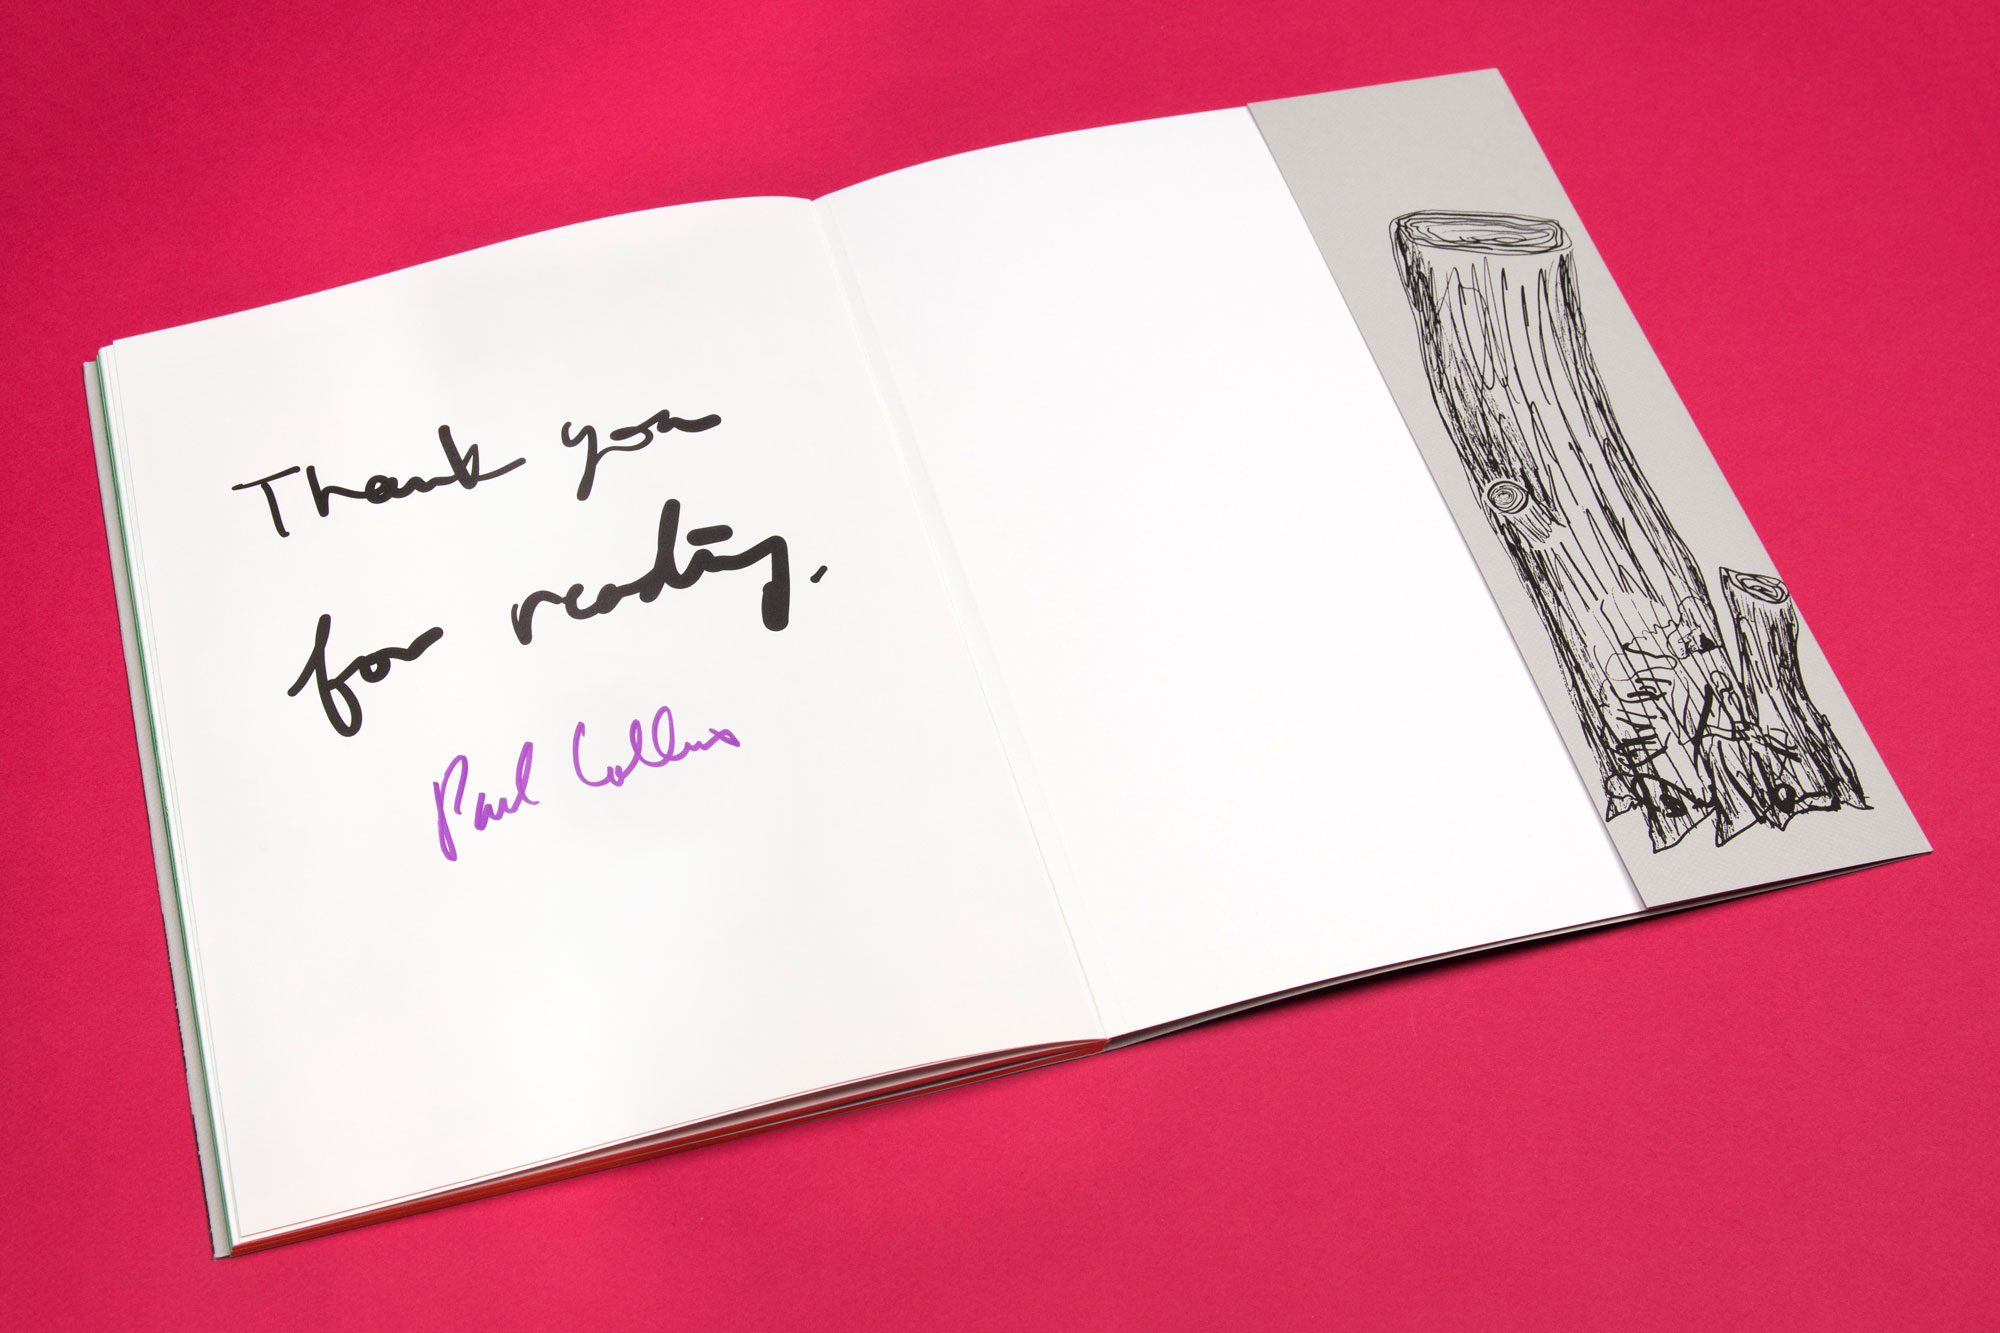 Thank you
for reading.
Paul Collins